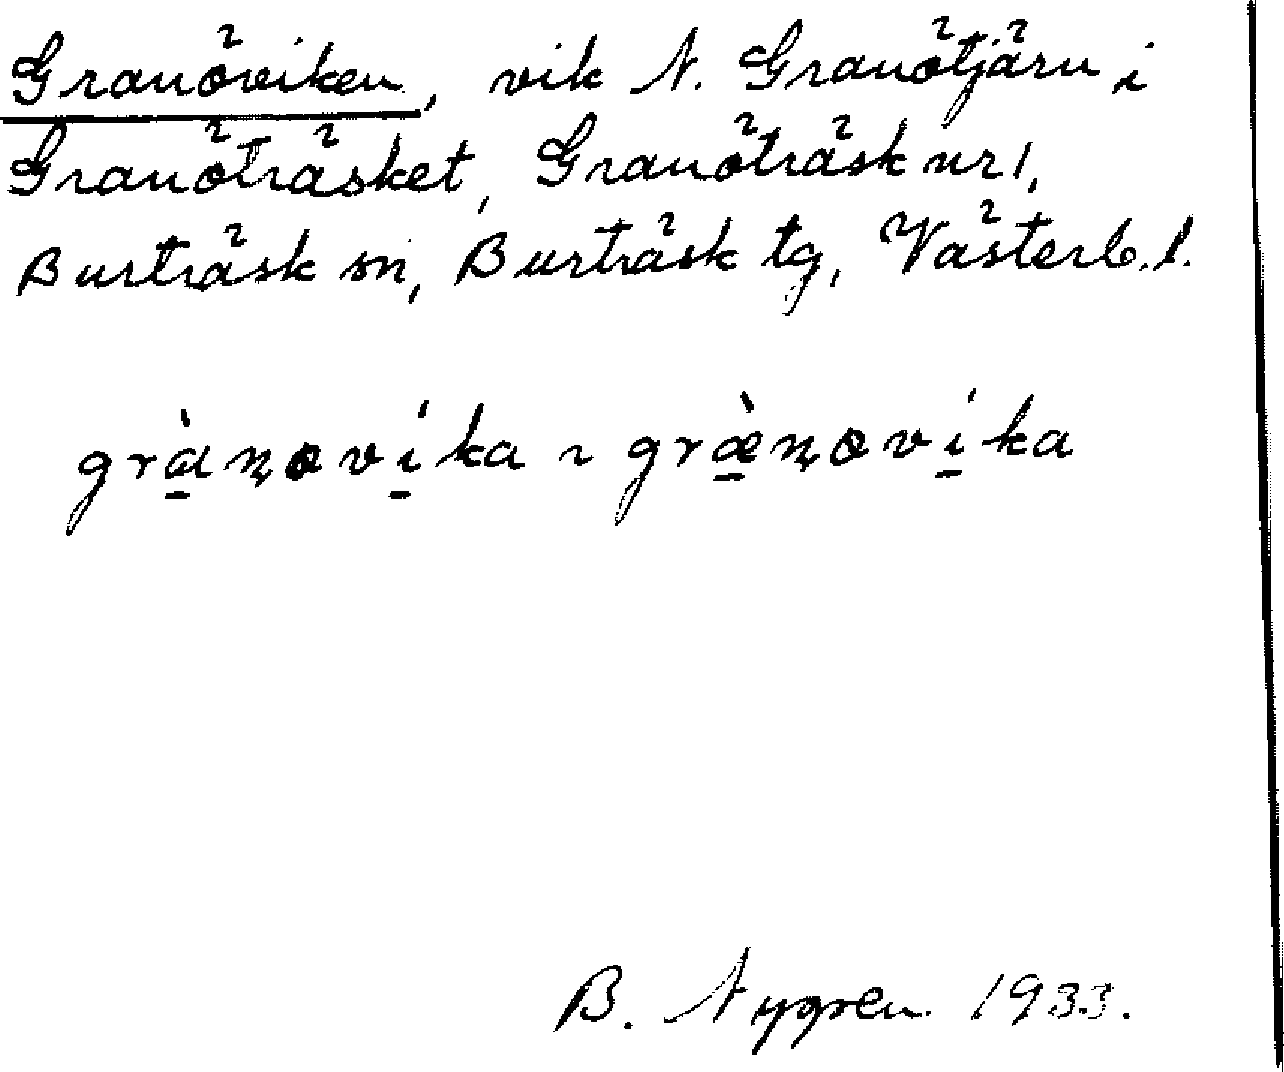 Granöviken, vik N. Granötjärn i
Granöträsket, Granöträsk nr 1,
Burträsk sn, Burträsk tg, Västerb. l.
gràṇovíka ~ græ̀ṇovíka
B. Nygren 1933.